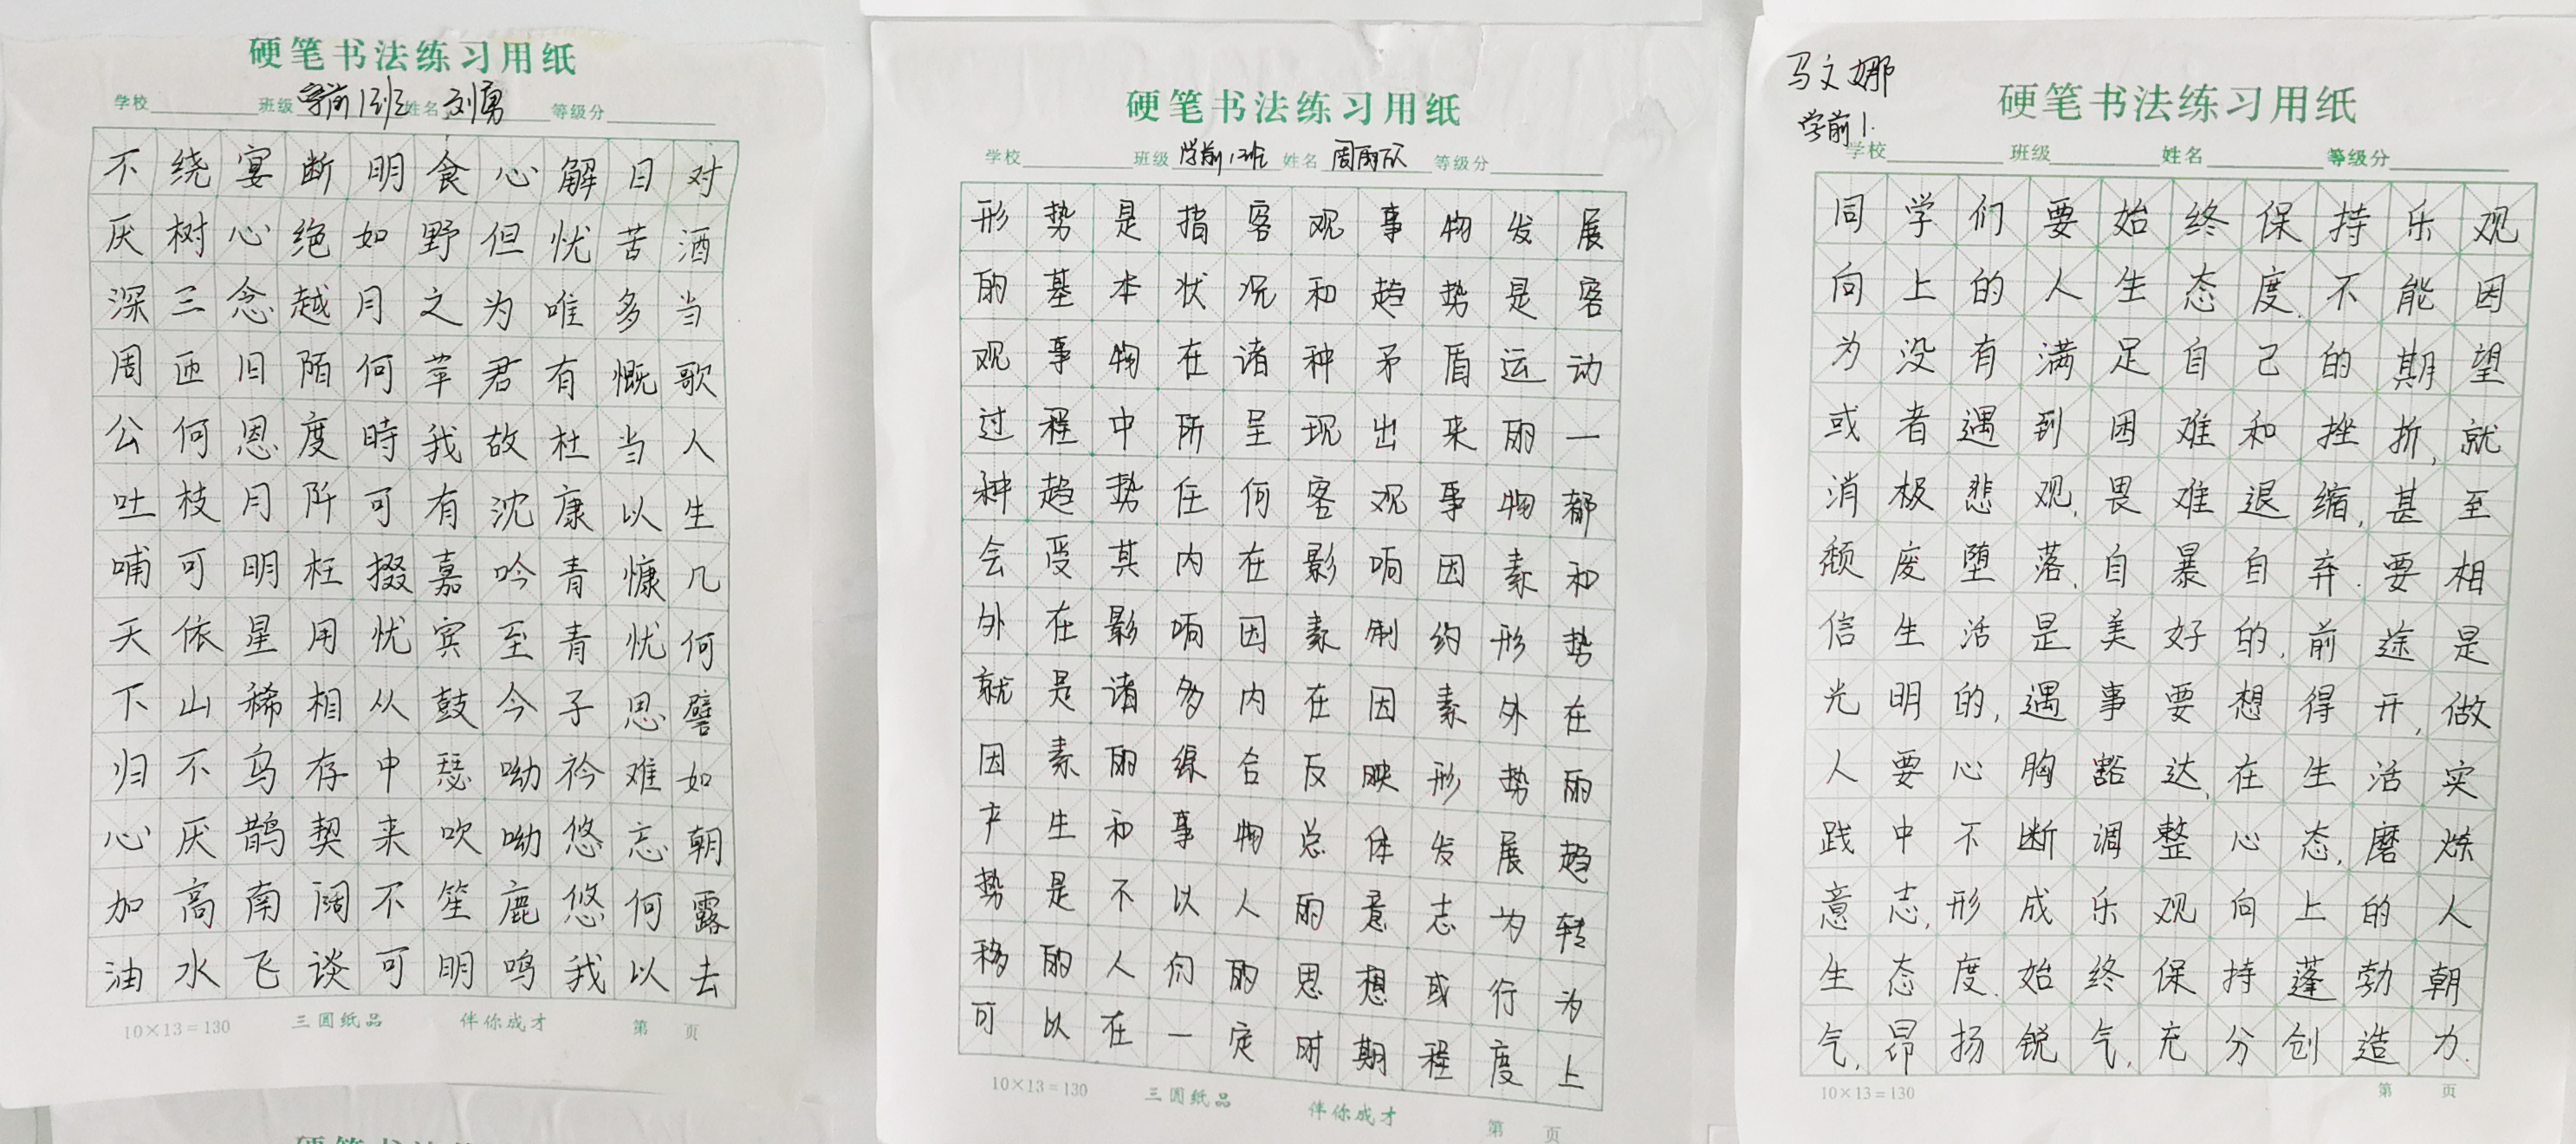 硬笔书法练习用纸
学校 班级 学前1班 姓名 刘勇 等级分
对酒当歌人生几何譬如朝露去
日苦多慨当以慷忧思难忘何以
解忧唯有杜康青青子衿悠悠我
心但为君故沈吟至今呦呦鹿鸣
食野之苹我有嘉宾鼓瑟吹笙明
明如月何時可掇忧从中来不可
断绝越陌度阡枉用相存契阔谈
宴心念旧恩月明星稀乌鹊南飞
绕树三匝何枝可依山不厌高水
不厌深周公吐哺天下归心加油
10×13=130 三圆纸品 伴你成才 第 页
硬笔书法练习用纸
学校 班级 学前1班 姓名 等级分
形势是指客观事物发展
的基本状况和趋势是客
观事物在诸种矛盾运动
过程中所呈现出来的一
种趋势任何客观事物都
会受其内在影响因素和
外在影响因素制约形势
就是诸多内在因素外在
因素的综合反映形势的
产生和事物总体发展趋
势是不以人的意志为转
移的人们的思想或行为
可以在一定时期程度上
10×13=130 三圆纸品 伴你成才 第 页
马文娜
学前1.
硬笔书法练习用纸
学校 班级 姓名 等级分
同学们要始终保持乐观
向上的人生态度.不能因
为没有满足自己的期望
或者遇到困难和挫折,就
消极悲观,畏难退缩,甚至
颓废堕落,自暴自弃.要相
信生活是美好的,前途是
光明的,遇事要想得开,做
人要心胸豁达,在生活实
践中不断调整心态,磨炼
意志,形成乐观向上的人
生态度.始终保持蓬勃朝
气,昂扬锐气,充分创造力.
10×13=130 第 页